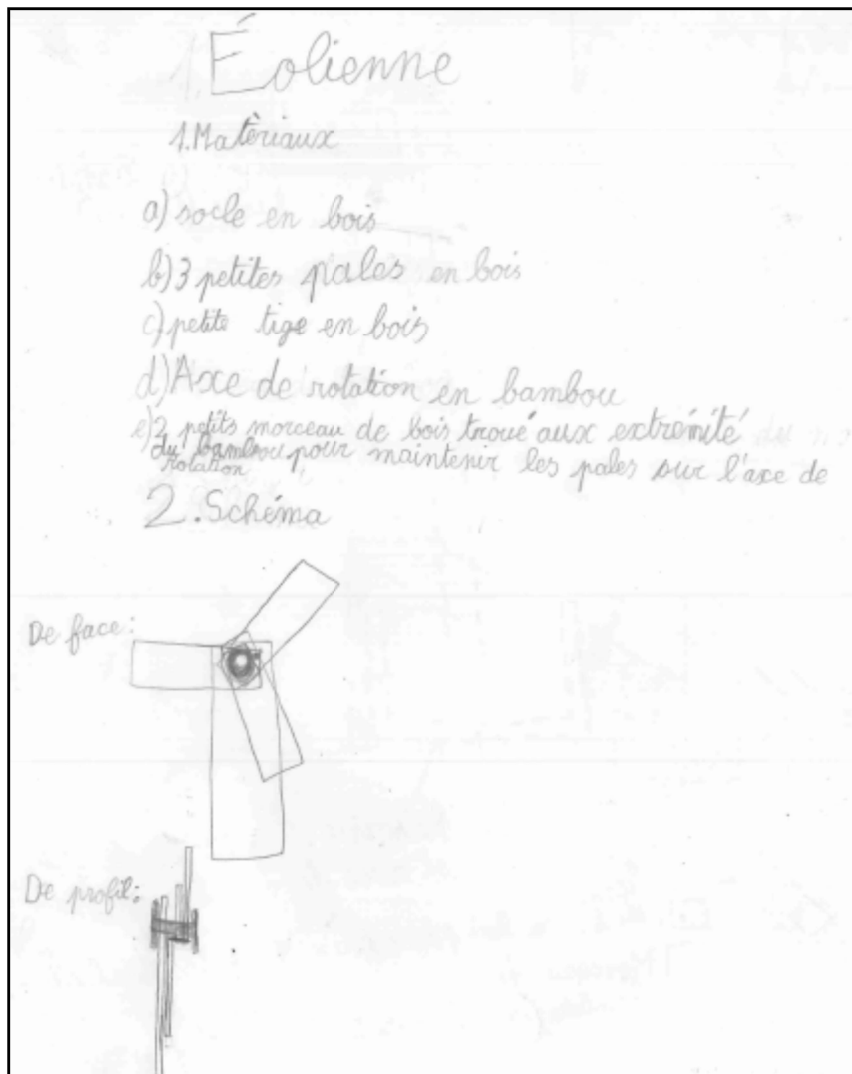 1. Éolienne
1. Matèriaux
a) socle en bois
b) 3 petites pales en bois
c) petite tige en bois
d) Axe de rotation en bambou
e) 2 petits morceau de bois troué aux extrémité
du bambou pour maintenir les pales sur l'axe de
rotation
2. Schéma
De face:
De profil: